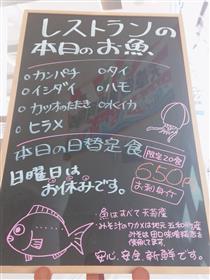 レストランの
本日のお魚
・カンパチ ・タイ
・イシダイ ・ハモ
・カツオのたたき ・水イカ
・ヒラメ
本日の日替定食
限定20食
650円
お刺身付
日曜日は
お休みです。
・魚はすべて天草産
・みそ汁のワカメは地元五和町産
みそは田口味噌
使用してます。
安心、安全、新鮮です。